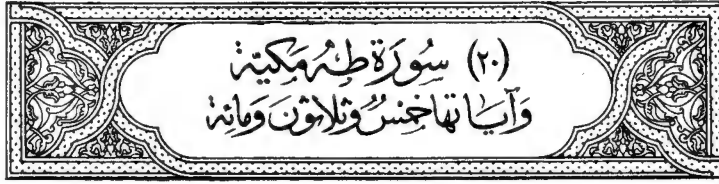 (٢٠) سُورَة طٰهٰ مَكيّة
وَآيَاتهَا خمسٌ وثلاثونَ وَمائة